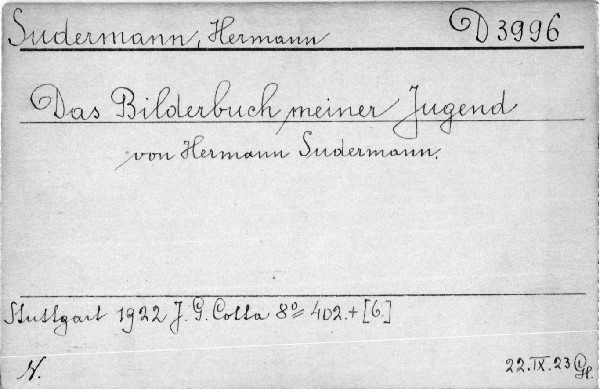 Sudermann, Hermann D 3996
Das Bilderbuch meiner Jugend
von Hermann Sudermann.
Stuttgart 1922 J. G. Cotta 8° 402.+[6.]
N. 22.IX.23 H.